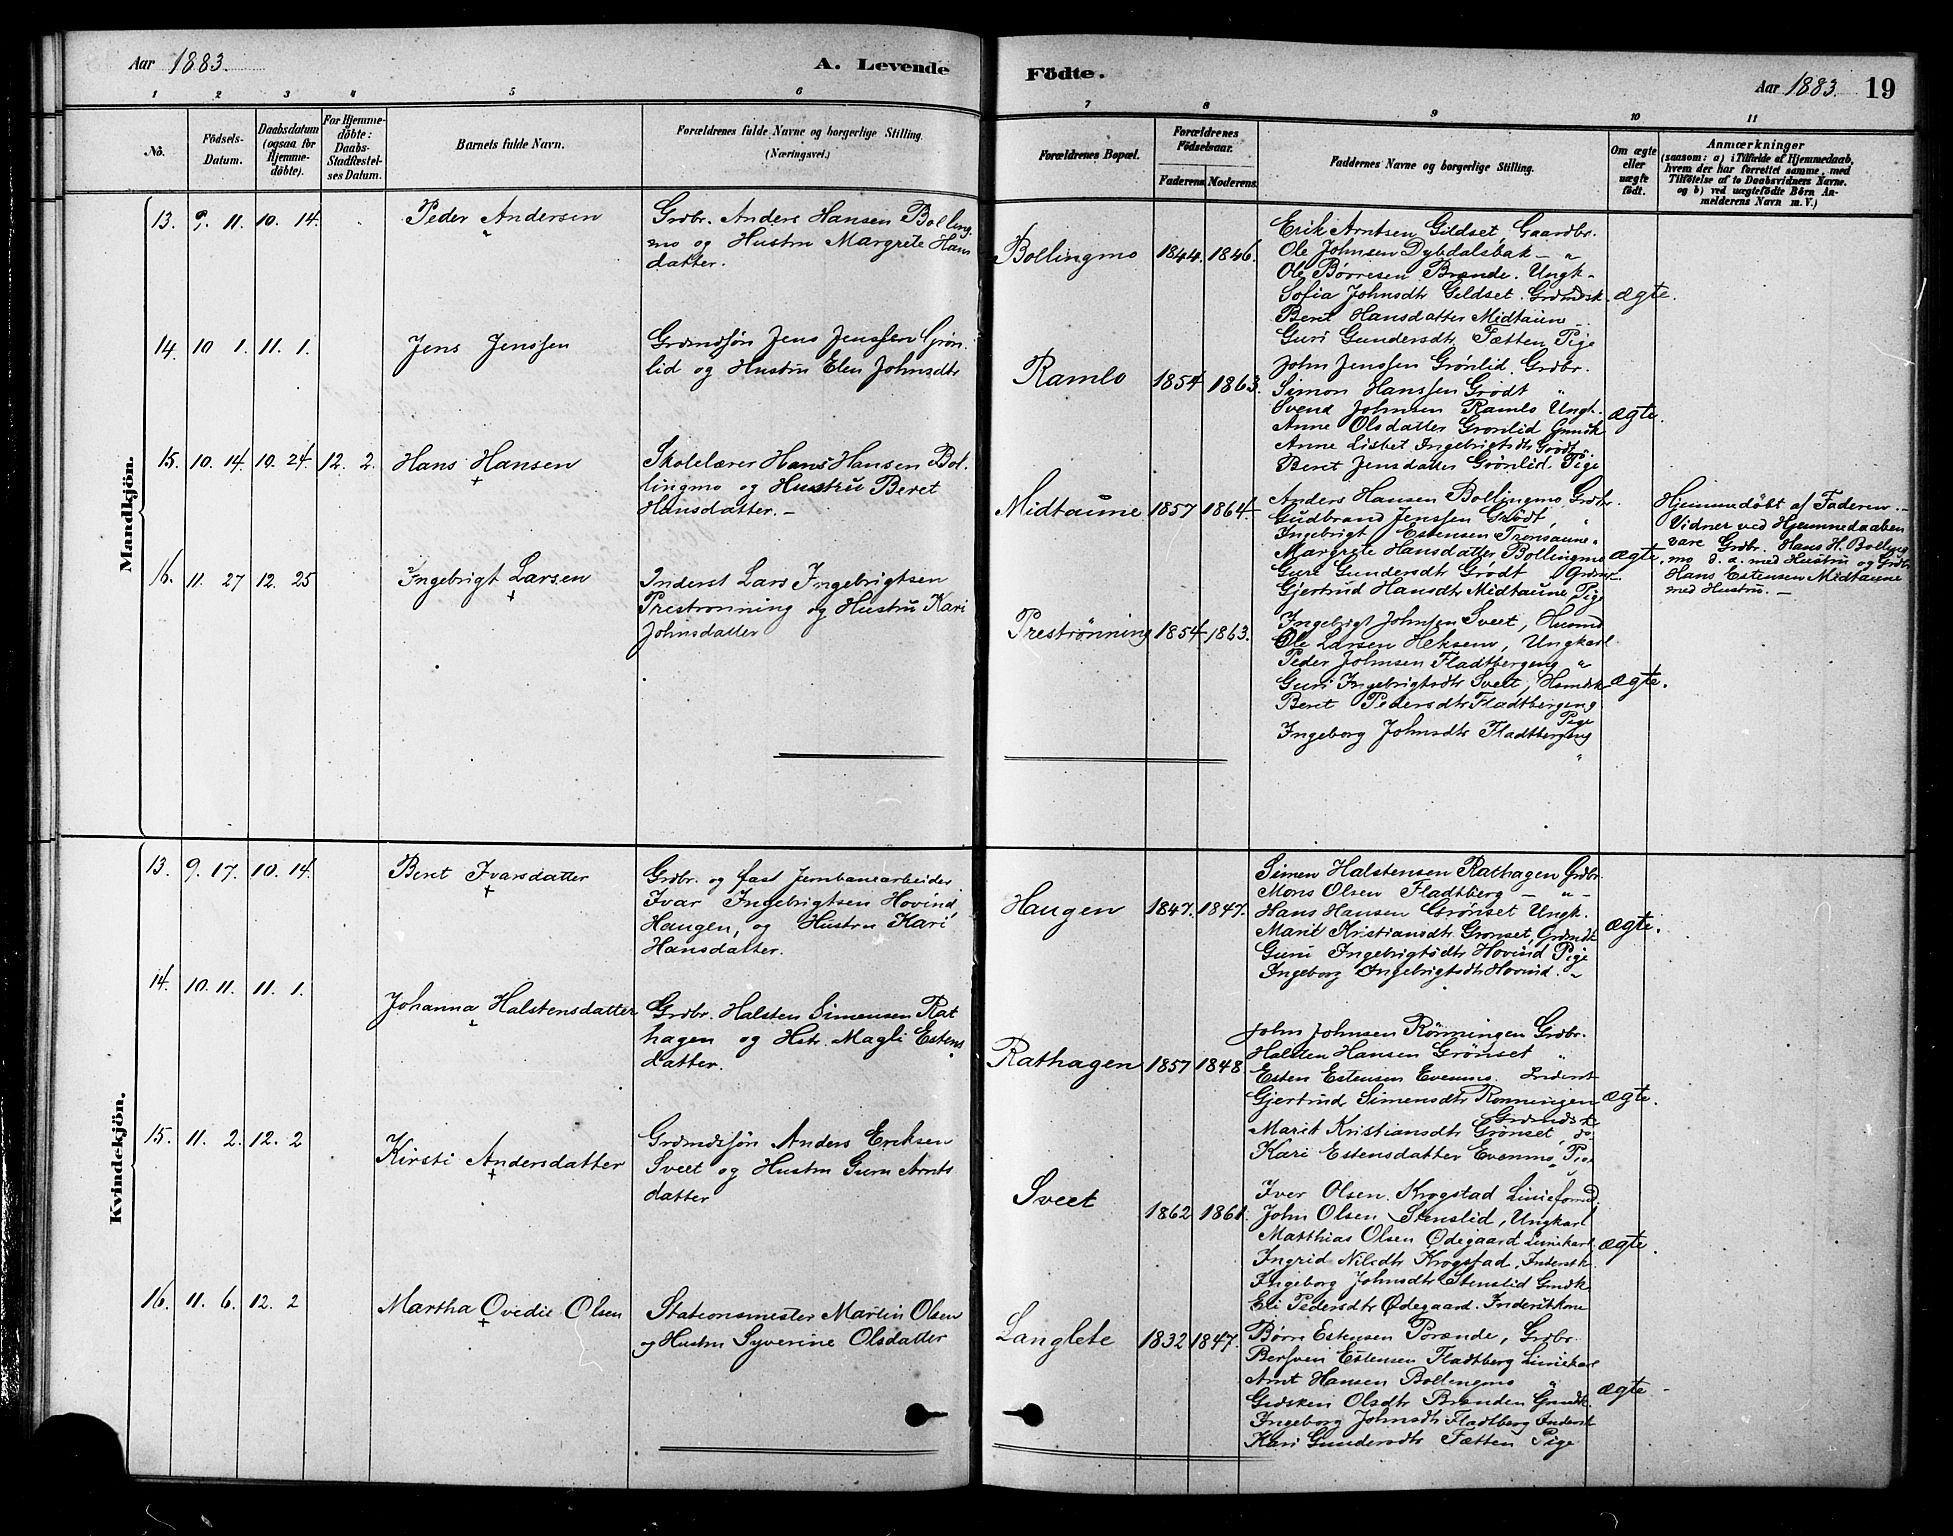 Aar 1883.
A. Levende
Födte.
Aar 1883. 19
1 2 3 4 5 6
7 8 9 10 11
No.
Födsels-
Datum.
Daabsdatum
(ogsaa for
Hjemme-
döbte).
For Hjemme-
döbte:
Daabs-
Stadfæstel-
ses Datum.
Barnets fulde Navn.
Forældrenes fulde Navne og borgerlige Stilling.
(Næringsvei.)
Forældrenes Bopæl.
Forældrenes
Födselsaar.
Faderens. Moderens.
Faddernes Navne og borgerlige Stilling.
Om ægte
eller
uægte
födt.
Anmærkninger
(saasom: a) i Tilfælde af Hjemmedaab,
hvem der har forrettet samme, med
Tilföielse af to Daabsvidners Navne.
og b) ved uægtefödte Börn An-
melderens Navn m. V.)
Mandkjön.
13. 9. 11. 10. 14. Peder Andersen
Grdbr. Anders Hansen Bolling
mo og Hustru Margrete Hans
datter.
Bollingmo 1844. 1846.
Erik Arntsen Gildset, Gaardbr.
Ole Johnsen Dybdalsbak - "
Ole Børresen Brænde. Ungk -
Sofia Johnsdtr Gildset. Grdmdsk.
Beret Hansdatter Midtaune
Guri Gundersdtr. Fætten Pige
ægte.
14. 10 1. 11. 1. Jens Jenssen
Grdmdsøn Jens Jenssen Grøn-
lid og Hustru Elen Johnsdtr
Ramlo 1854 1863.
John Jenssen Grønlid. Grdbr.
Simon Hanssen Grødt "
Svend Johnsen Ramlo Ungk.
Anne Olsdatter Grønlid Gmdk
Anne Lisbet Ingebrigtsdtr Grødt
Beret Jensdatter Grønlid. Pige
ægte.
15. 10. 14. 10. 24. 12. 2. Hans Hansen
Skolelærer Hans Hansen Bol-
lingmo og Hustru Beret
Hansdatter. -
Midtaune 1857 1864.
Anders Hansen Bollingmo Grdbr.
Gudbrand Jenssen Grødt, "
Ingebrigt Estensen Trønsaune "
Margrete Hansdatter Bollingmo
Gure Gundersdtr Grødt
Gjertrud Hansdtr Midtaune Pige
ægte.
Hjemmedøbt af Faderen. -
Vidner ved Hjemmedaaben
vare Grdbr. Hans H. Bolling
mo d. a. med Hustru og Grdbr
Hans Estensen Midtaune
med Hustru. -
16. 11. 27 12. 25 Ingebrigt Larsen
Inderst Lars Ingebrigtsen
Prestrønning og Hustru Kari
Johnsdatter
Prestrønning 1854 1863.
Ingebrigt Johnsen Sveet, Husmd
Ole Larsen Heksem, Ungkarl
Peder Johnsen Fladtbergeng "
Guri Ingebrigtsdtr Sveet, Hsmdk
Beret Pedersdtr Fladtbergeng
Pige
Ingeborg Johnsdtr Fladtbergeng
"
ægte.
Kvindekjön.
13. 9. 17. 10. 14. Beret Ivarsdatter
Grdbr. og fast Jernbanearbeider
Ivar Ingebrigtsen Hovind,
Haugen, og Hustru Kari
Hansdatter.
Haugen 1847. 1847.
Simen Halstensen Rathagen Grdbr.
Mons Olsen Fladtberg - " -
Hans Hansen Grønset Ungk.
Marit Kristiansdtr Grønset, Grdmdk
Guri Ingebrigtsdtr Hovind Pige
Ingeborg Ingebrigtsdtr Hovind. "
ægte.
14. 10. 11. 11. 1. Johanna Halstensdatter
Grdbr. Halsten Simensen Rat
hagen og Hstr. Magli Estens
datter.
Rathagen 1857 1848
John Johnsen Rönningen Grdbr.
Halsten Hansen Grönset "
Esten Estensen Evenmo. Inderst
Gjertrud Simensdtr Rönningen
Grdmdsk
Marit Kristiansdtr Grönset, do
Kari Estensdatter Evenmo, Pige
ægte.
15. 11. 2. 12. 2 Kirsti Andersdatter
Grdmdsøn Anders Eriksen
Sveet og Hustru Guru Arnts
datter
Sveet 1862 1861.
Iver Olsen Krogstad Linieformd,
John Olsen Stenslid, Ungkarl
Matthias Olsen Ødegaard Liniekarl
Ingrid Nilsdtr Krogstad, Inderstk.
Ingeborg Johnsdtr Stenslid Gmdk
Eli Pedersdtr Ødegaard. Inderstkone
ægte.
16. 11. 6. 12. 2 Martha Ovedie Olsen
Stationsmester Martin Olsen
og Hustru Syverine Olsdatter
Langlete 1832 1847.
Børre Estensen Porænde, Grdbr.
Berfven Estensen Fladtberg Liniekarl
Arnt Hansen Bollingmo "
Gidsken Olsdtr Brænden Grmdk
Ingeborg Johnsdtr Fladtberg Inderst
Kari Gundersdtr Fætten Pige
ægte -